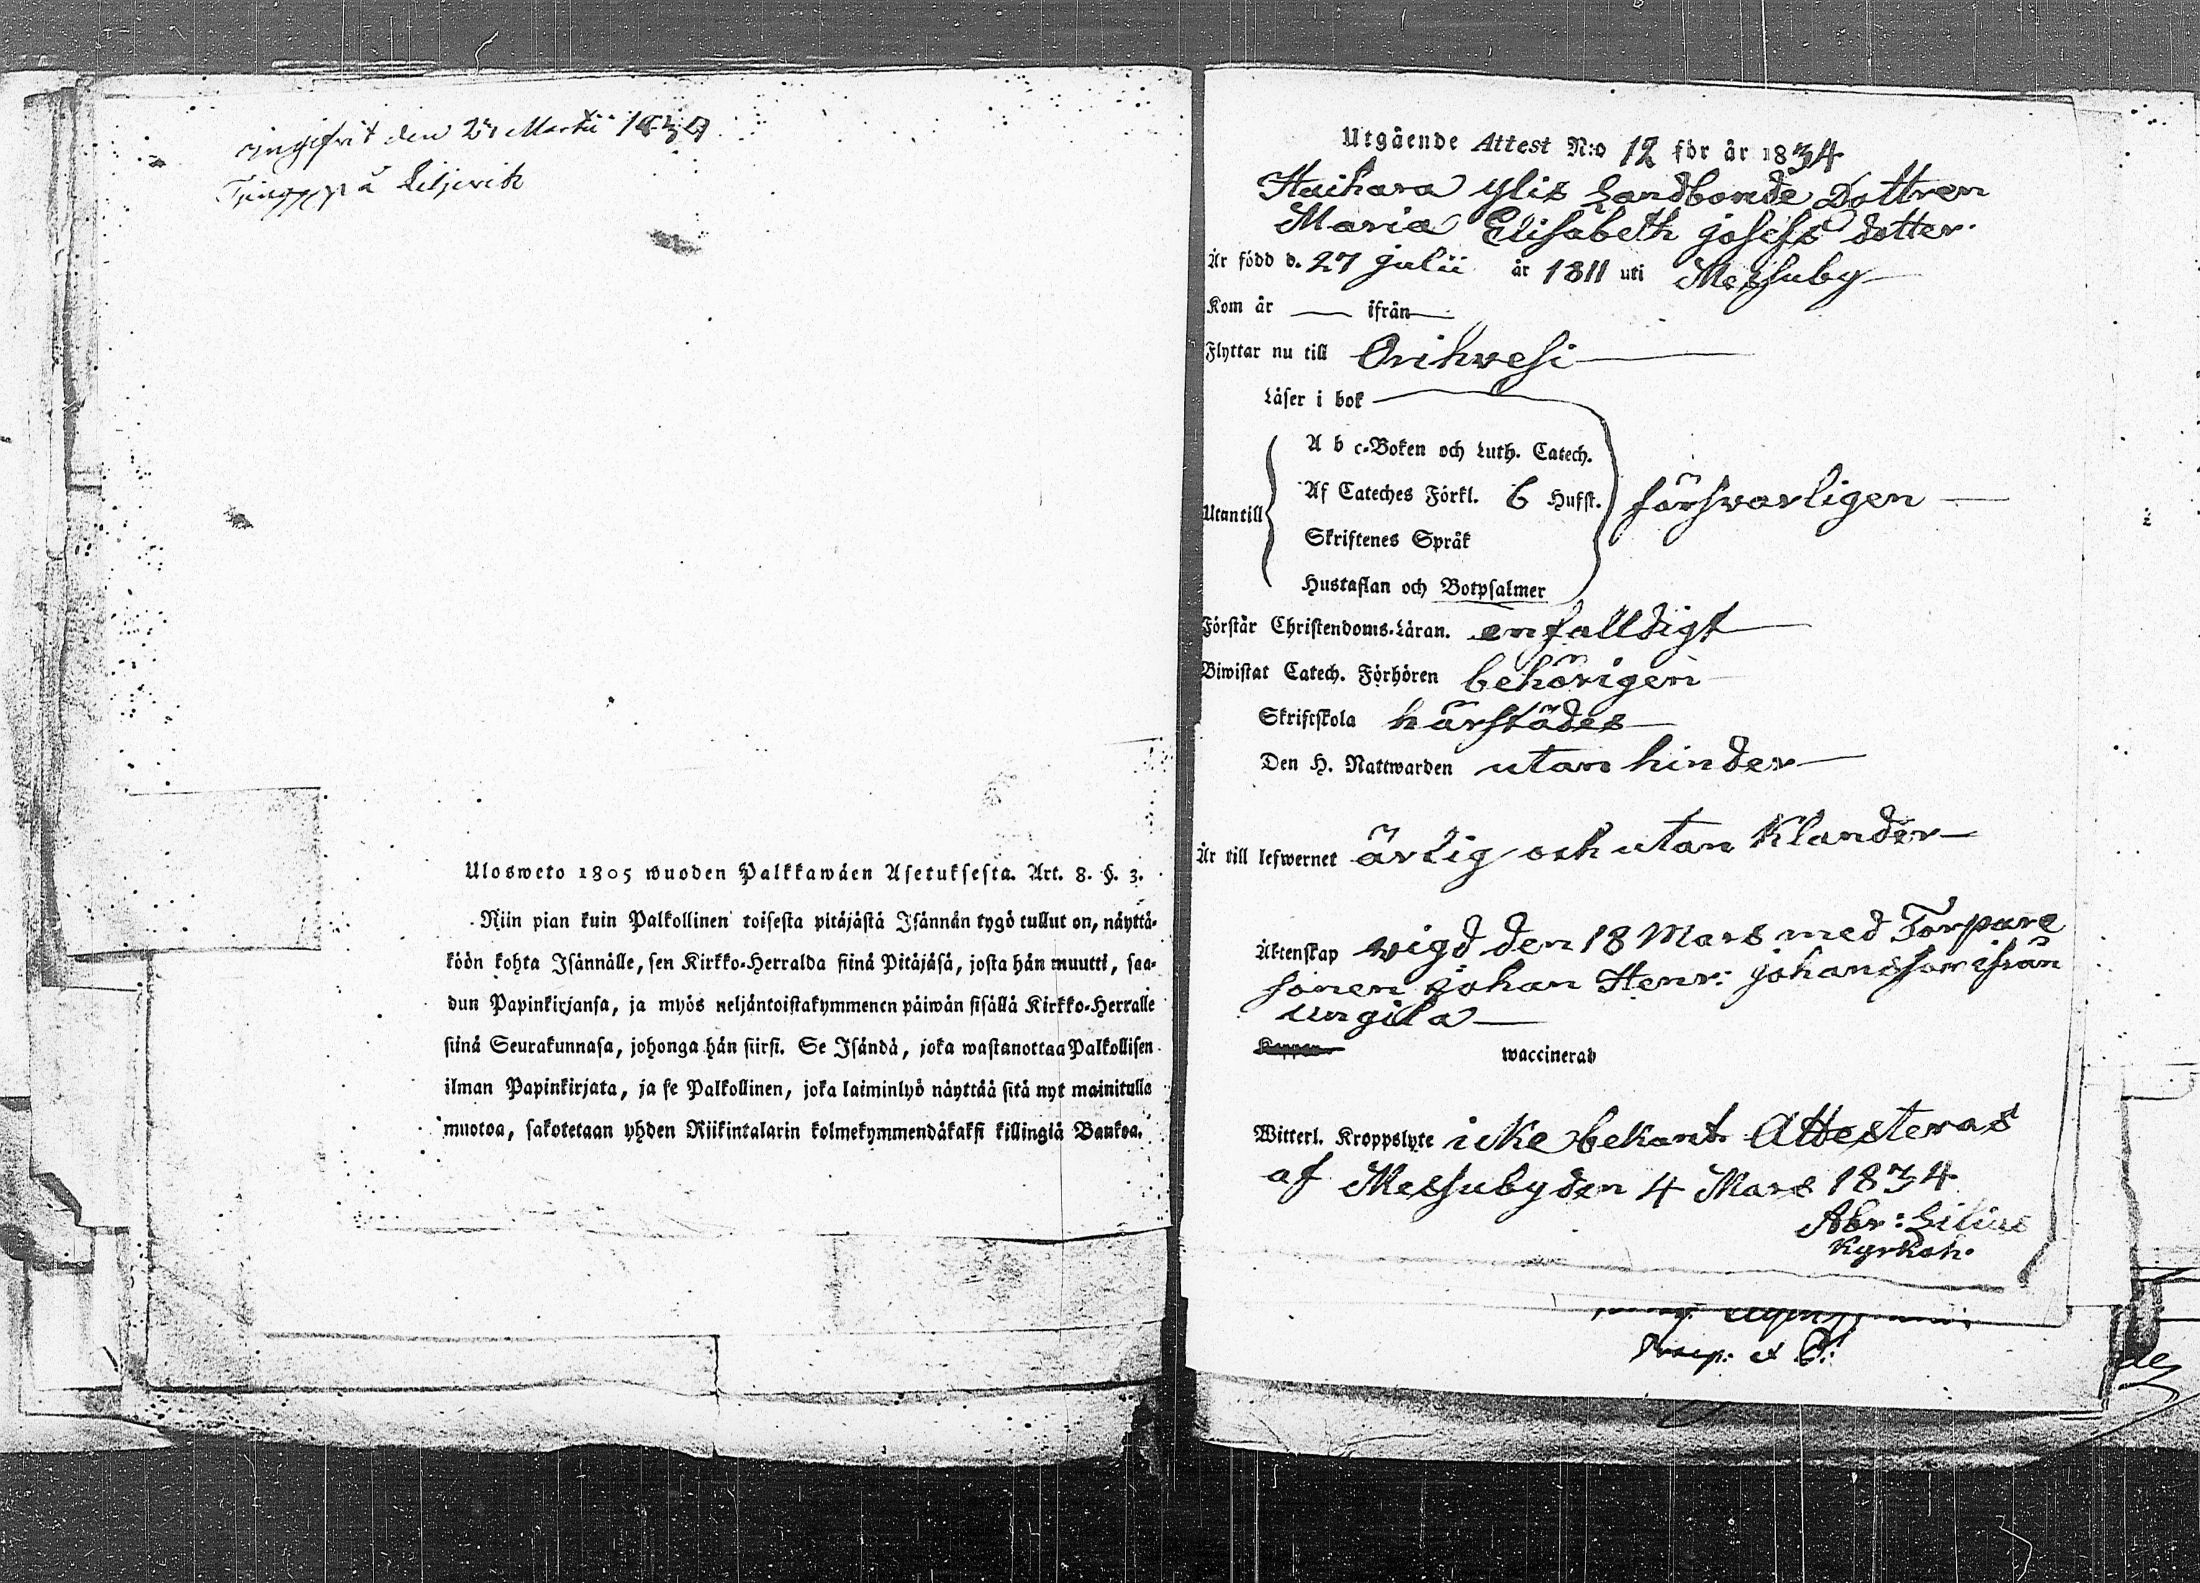 den Martii
på Liljevik
Ulosweto 1805 wuoden Palkkawäen Asetuksesta. Art. 8. §. 3.
Niin pian kuin Palkollinen toisesta pitäjästä Isännän tygö tullut on, näyttä-
köön kohta Isännälle, sen Kirkko-Herralda siinä Pitäjäsä, josta hän muutti, saa-
dun Papinkirjansa, ja myös neljäntoistakymmenen päiwän sisällä Kirkko-Herralle
siinä Seurakunnasa, johonga hän siirsi. Se Isändä, joka wastanottaa Palkollisen
ilman Papinkirjata, ja se Palkollinen, joka laiminlyö näyttää sitä nyt mainitulla
muotoa, sakotetaan yhden Riikintalarin kolmekymmendäkaksi killingiä Bankoa.
Utgående Attest N:o 12 för år 1834
Haihara ylis Landbonde Dottren
Maria Elisabeth josefs dotter.
Är född d. 27 julii år 1811 uti Messuby
Kom år — ifrån —
Flyttar nu till Orihvesi
Läser i bok
A b c-Boken och Luth. Catech.
Af Cateches Förkl. 6 Hufst.
Utantill försvarligen
Skriftenes Språk
Hustaflan och Botpsalmer
Förstår Christendoms-Läran. enfalldigt
Biwistat Catech. Förhören behörigen
Skriftskola härstädes
Den H. Nattwarden utan hinder
Är till lefwernet ärlig och utan Klander
Äktenskap vigd den 18 Mars med Torpare
sonen johan Henr: johansson ifrån
Koppor waccinerad
Witterl. Kroppslyte icke bekant. Attesteras
af Messuby den 4 Mars 1834
Abr: Lilius
Kyrkoh.